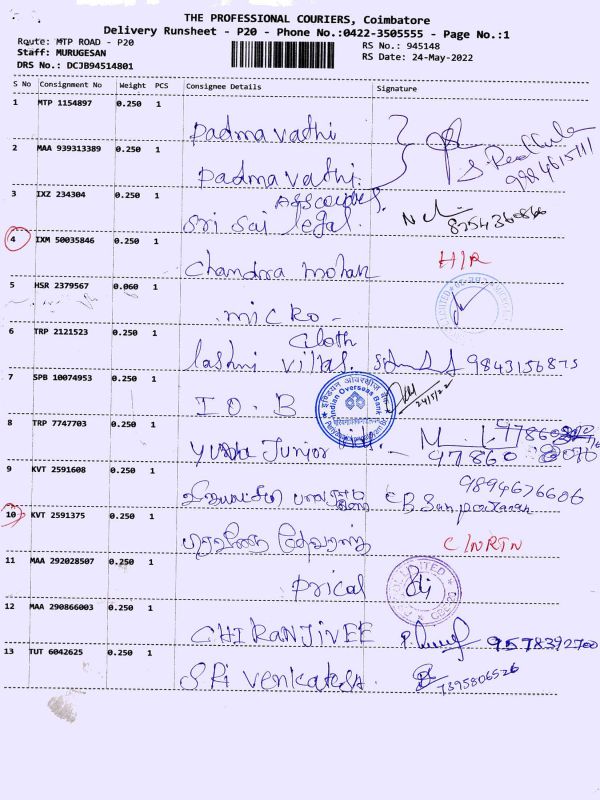 THE PROFESSIONAL COURIERS, Coimbatore
Delivery Runsheet - P20 - Phone No.:0422-3505555 - Page No.:1
Route: MTP ROAD - P20
RS No.: 945148
Staff: MURUGESAN
RS Date: 24-May-2022
DRS No.: DCJB94514801
S No Consignment No Weight PCS Consignee Details Signature
1 MTP 1154897 0.250 1
Padma vathi
2 MAA 939313389 0.250 1
Padma vathi.
3 IXZ 234304 0.250 1
Sri Sai legal.
4 IXM 50035846 0.250 1
Chandra mohan
5 HSR 2379567 0.060 1
micro -
6 TRP 2121523 0.250 1
cloth
9843156875
7 SPB 10074953 0.250 1
I O. B
Indian Overseas Bank
24/5/22
8 TRP 7747703 0.250 1
Junior
97860
9 KVT 2591608 0.250 1
9894676606
10 KVT 2591375 0.250 1
C/NRTN
11 MAA 292028507 0.250 1
Prical
12 MAA 290866003 0.250 1
CHIRANJIVEE
9578392700
13 TUT 6042625 0.250 1
SRi Venkatesa.
7395806526